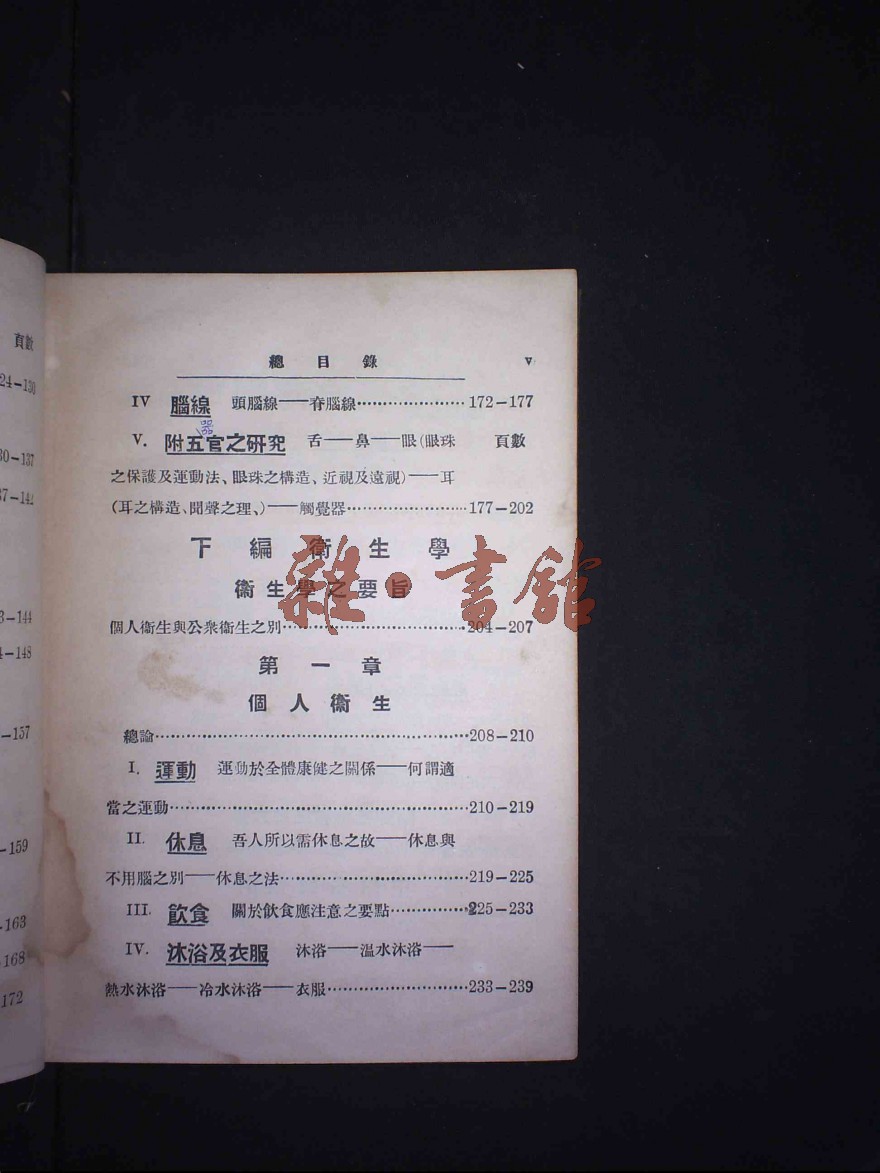 頁數
24－130
30－137
37－142
3－144
4－148
－157
－159
－163
－168
172
總目錄 v
IV 腦線 頭腦線——脊腦線…………………172－177
器
V. 附五官之研究 舌——鼻——眼(眼珠 頁數
之保護及運動法、眼珠之構造、近視及遠視)——耳
(耳之構造、聞聲之理、)——觸覺器…………………177－202
下編 衛生學
衛生學之要旨
個人衛生與公衆衛生之別…………………………204－207
第一章
個人衛生
總論……………………………………………208－210
I. 運動 運動於全體康健之關係——何謂適
當之運動…………………………………………210－219
II. 休息 吾人所以需休息之故——休息與
不用腦之別——休息之法…………………………219－225
III. 飲食 關於飲食應注意之要點…………225－233
IV. 沐浴及衣服 沐浴——溫水沐浴——
熱水沐浴——冷水沐浴——衣服…………………233－239
雜·書館